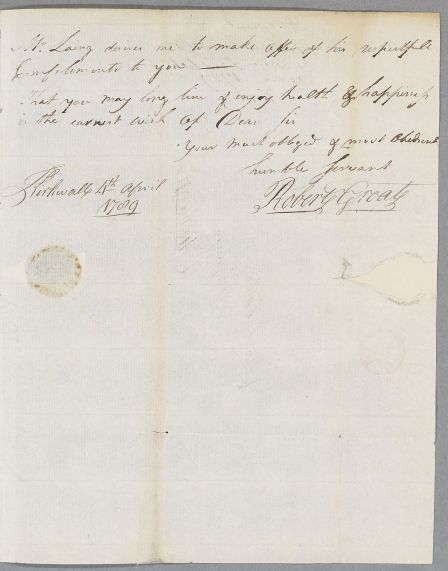 Mr. Laing desires me to make offer of his respectfull
Compliments to you —
That you may long live & enjoy health & happiness
is the earnest wish of Dear Sir
Your much obliged & most Obedient
humble Servant
Robert Groat
Kirkwall 4th April
1789